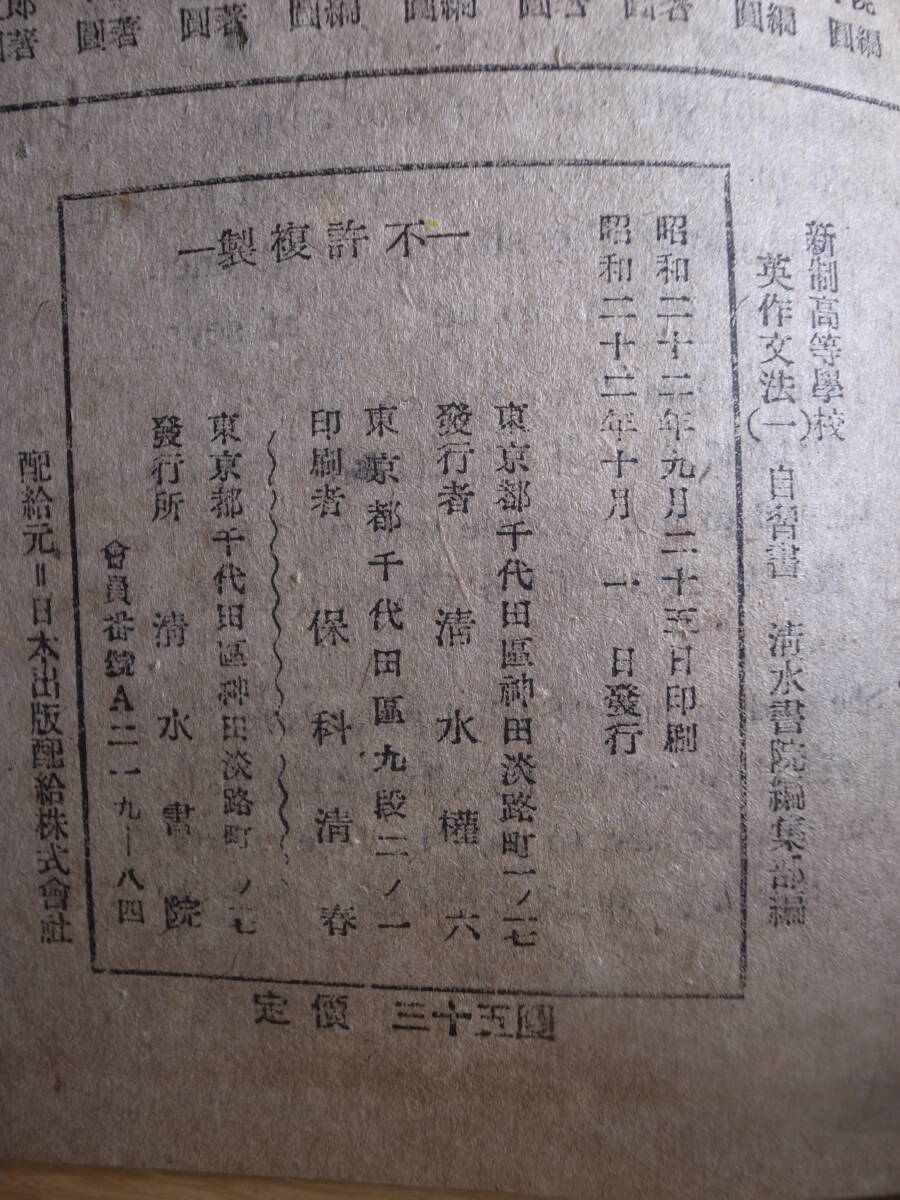 圓編
圓編
圓著
圓著
圓編
圓編
圓著
圓著
圓著
新制高等學校
英作文法(一) 自習書 清水書院編集部編
昭和二十二年九月二十五日印刷
昭和二十二年十月一日發行
―不許複製―
東京都千代田區神田淡路町一ノ一七
發行者 清水權六
東京都千代田區九段二ノ一
印刷者 保科清春
東京都千代田區神田淡路町 ノ一七
發行所 清水書院
會員番號A二一九一八四
配給元=日本出版配給株式會社
定價 三十五圓